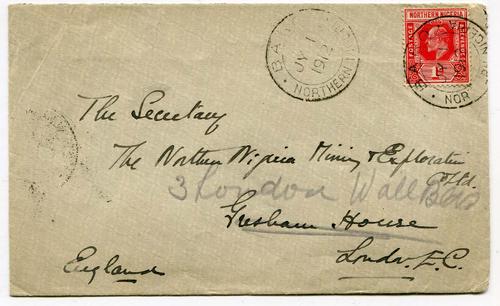 NORTHERN NIGERIA
POSTAGE
REVENUE
JY 1
1912
NORTHERN
NOR
The Secretary
The Northern Nigeria Mining & Exploration
Co Ltd.
3 London Wall Bdgs
Gresham House
London. E.C.
England